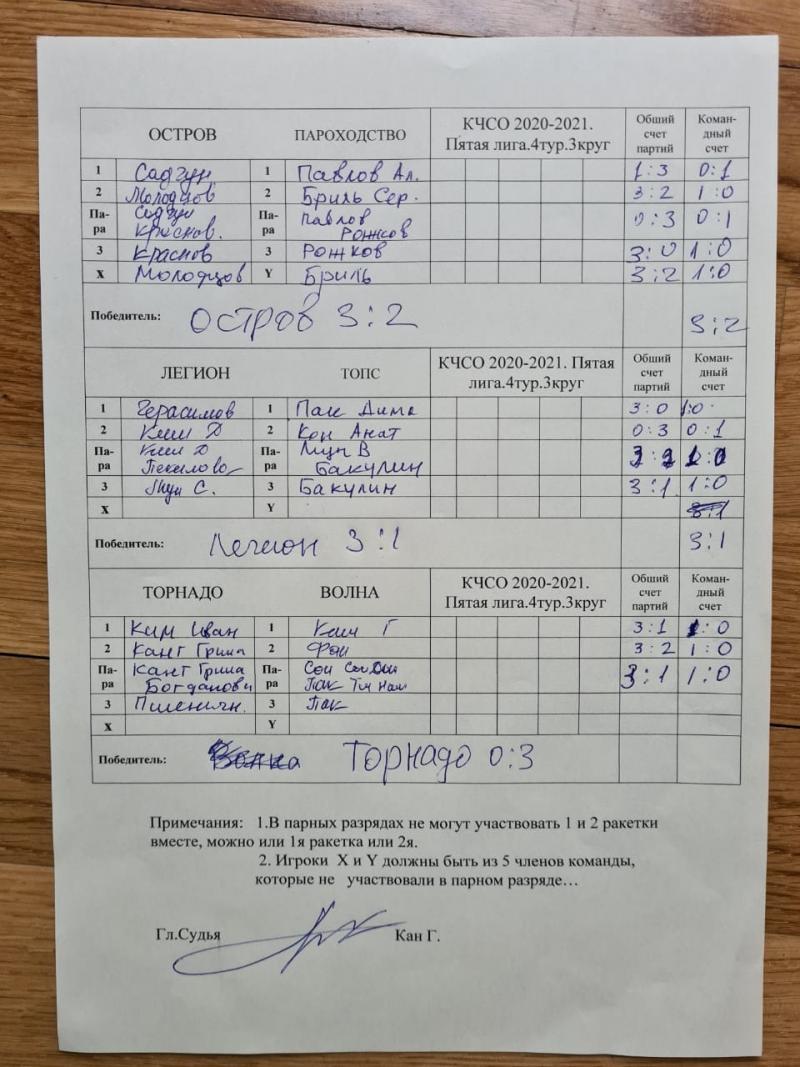 ОСТРОВ ПАРОХОДСТВО КЧСО 2020-2021. Пятая лига.4тур.3круг Общий счет партий Коман-дный счет
1 Садгун 1 Павлов Ал. 1:3 0:1
2 Молодцов 2 Бриль Сер. 3:2 1:0
Па-ра Садгун Краснов. Па-ра Павлов Рожков 0:3 0:1
3 Краснов 3 Рожков 3:0 1:0
X Молодцов Y Бриль 3:2 1:0
Победитель: Остров 3:2 3:2
ЛЕГИОН ТОПС КЧСО 2020-2021. Пятая лига.4тур.3круг Общий счет партий Коман-дный счет
1 Герасимов 1 Пак Дима 3:0 1:0
2 Ким Д 2 Кон Анат 0:3 0:1
Па-ра Ким Д Па-ра В Бакулин
3 С. 3 Бакулин 3:1 1:0
X Y 3:1
Победитель: Легион 3:1 3:1
ТОРНАДО ВОЛНА КЧСО 2020-2021. Пятая лига.4тур.3круг Общий счет партий Коман-дный счет
1 Ким Иван 1 Ким Г 3:1 1:0
2 Кант Гриша 2 3:2 1:0
Па-ра Кант Гриша Па-ра 3:1 1:0
Пак
3 Пшеничн. 3 Пак
X Y
Победитель: Волна Торнадо 0:3
Примечания: 1.В парных разрядах не могут участвовать 1 и 2 ракетки
вместе, можно или 1я ракетка или 2я.
2. Игроки X и Y должны быть из 5 членов команды,
которые не участвовали в парном разряде…
Гл.Судья Кан Г.